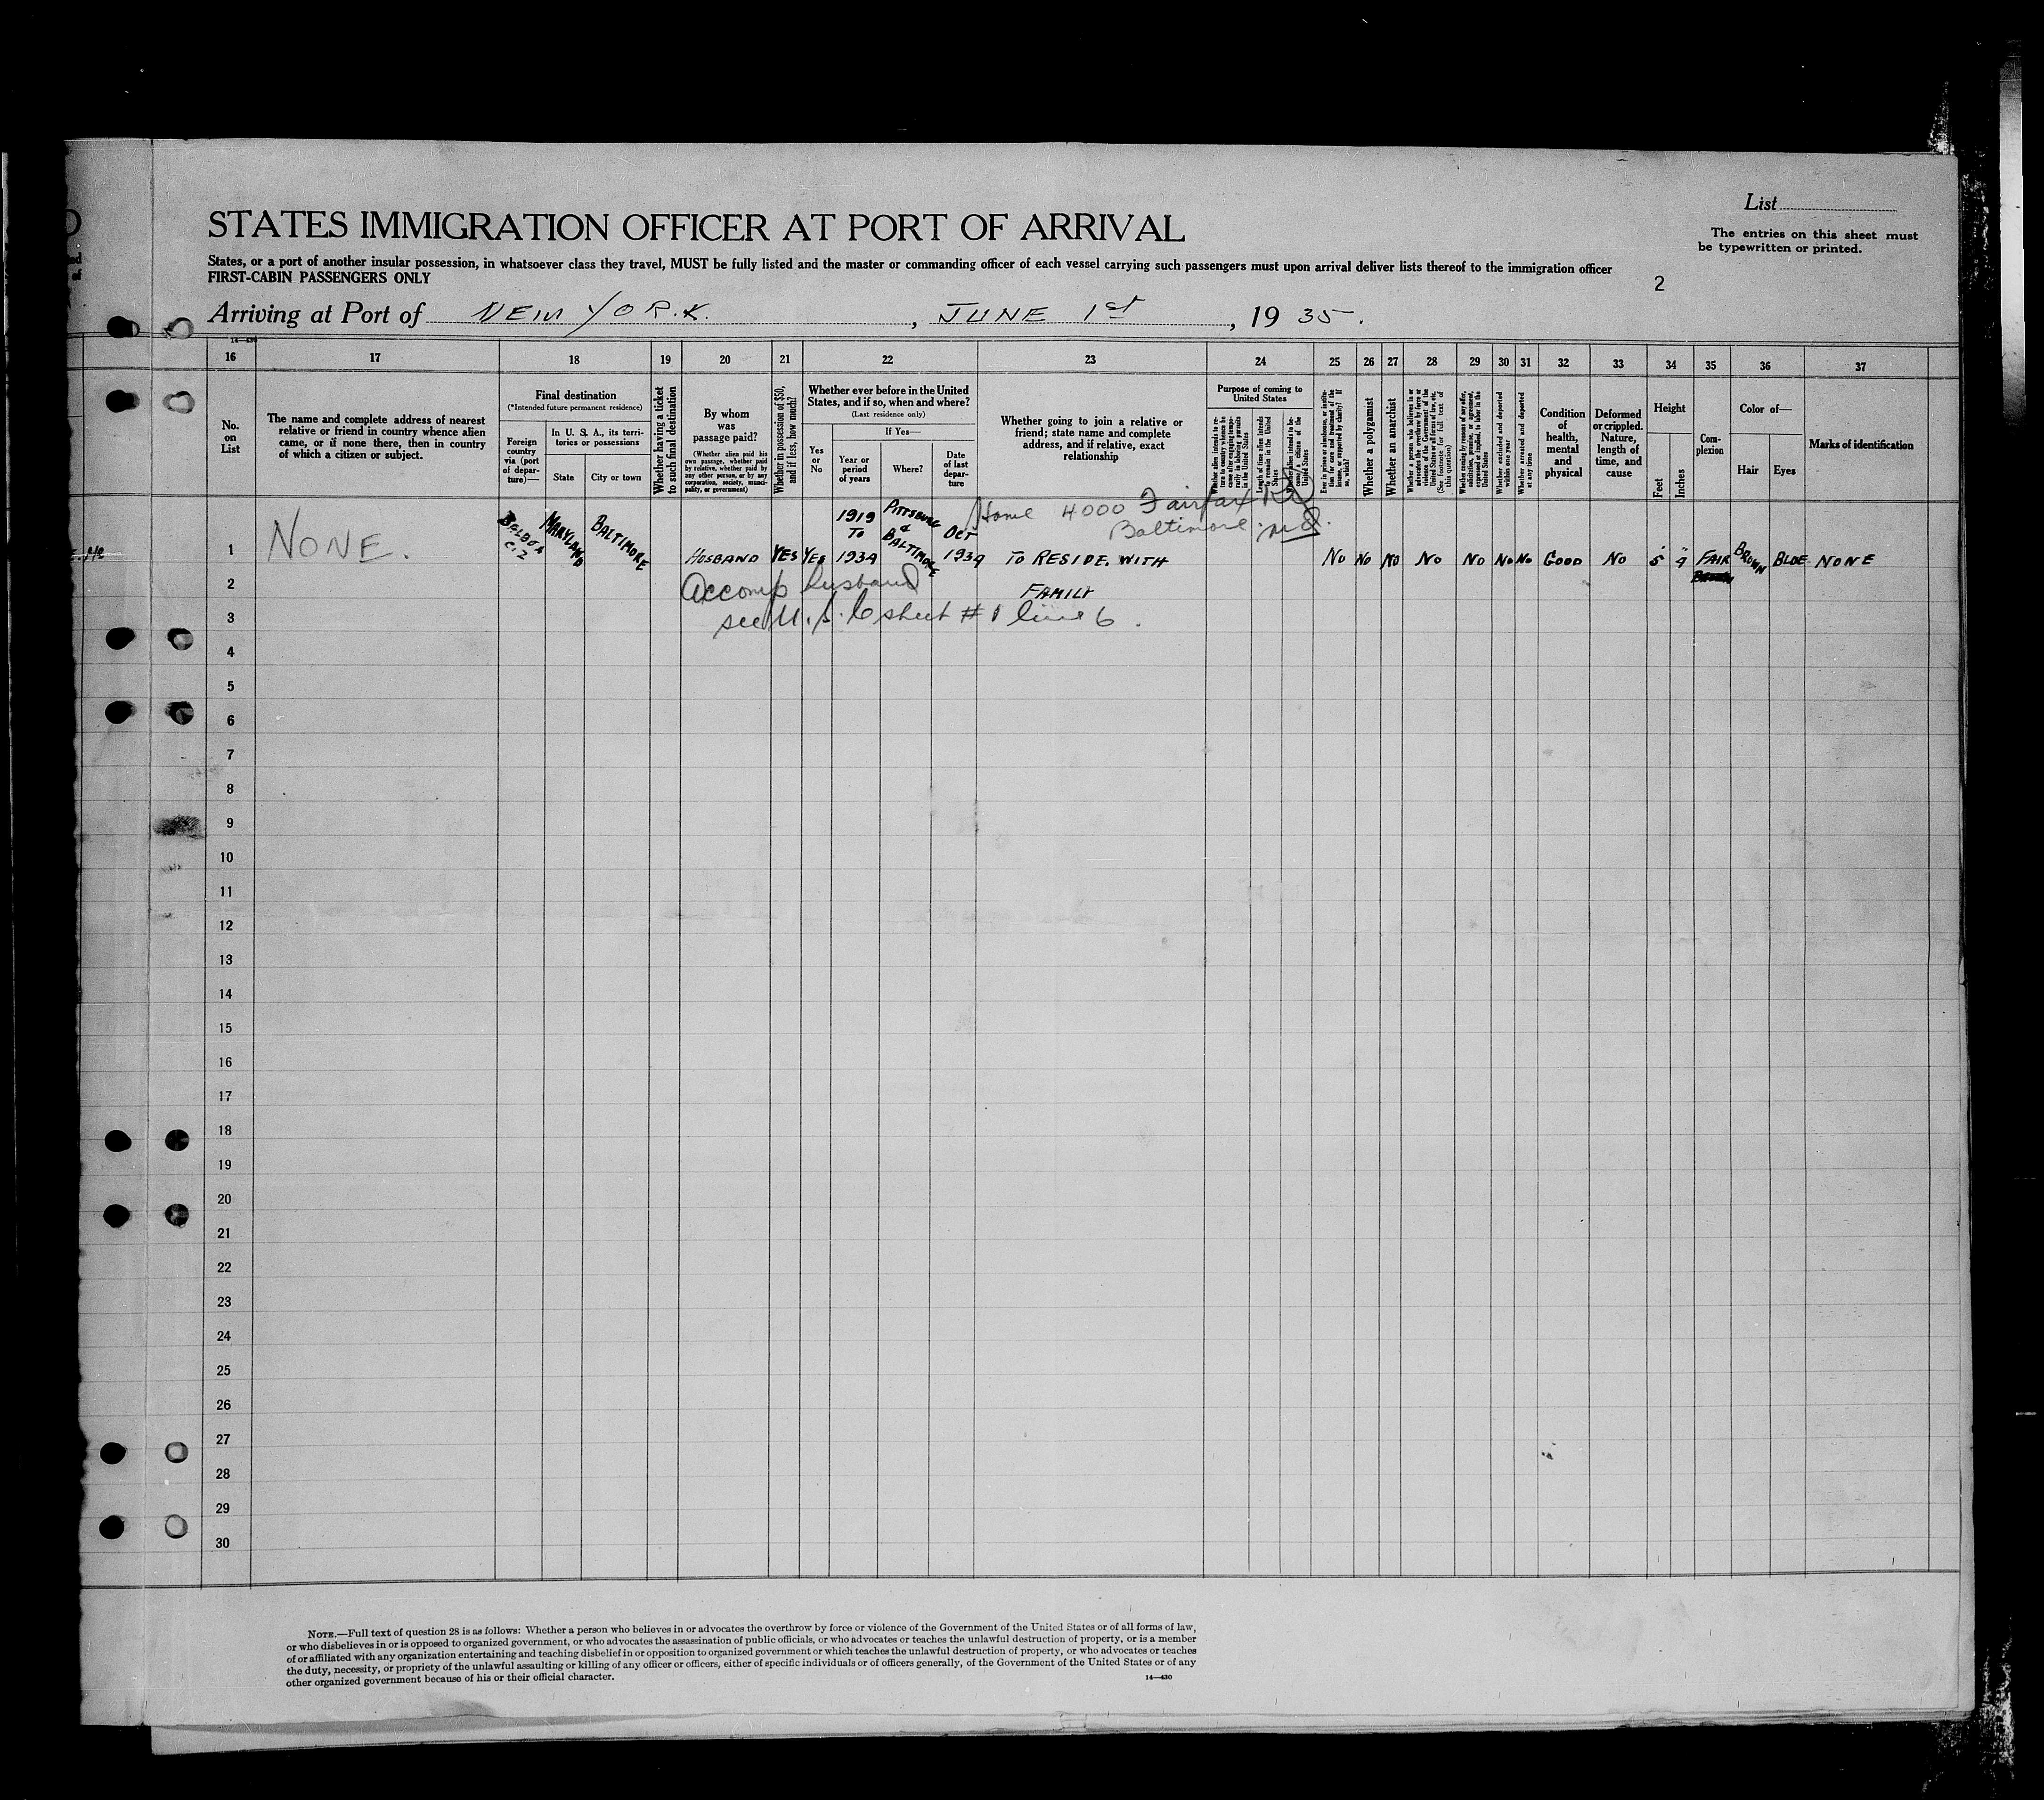 List
The entries on this sheet must
be typewritten or printed.
STATES IMMIGRATION OFFICER AT PORT OF ARRIVAL
States, or a port of another insular possession, in whatsoever class they travel, MUST be fully listed and the master or commanding officer of each vessel carrying such passengers must upon arrival deliver lists thereof to the immigration officer
FIRST-CABIN PASSENGERS ONLY
2
Arriving at Port of NEW YORK. , JUNE 1st , 19 35.
14—430
16 17 18 19 20 21 22 23 24 25 26 27 28 29 30 31 32 33 34 35 36 37
No.
on
List
The name and complete address of nearest
relative or friend in country whence alien
came, or if none there, then in country
of which a citizen or subject.
Final destination
(*Intended future permanent residence)
Foreign
country
via (port
of depar-
ture)—
In U. S. A., its terri-
tories or possessions
State
City or town
Whether having a ticket
to such final destination
By whom
was
passage paid?
(Whether alien paid his
own passage, whether paid
by relative, whether paid by
any other person, or by any
corporation, society, munici-
pality, or government)
Whether in possession of $50,
and if less, how much?
Whether ever before in the United
States, and if so, when and where?
(Last residence only)
Yes
or
No
If Yes—
Year or
period
of years
Where?
Date
of last
depar-
ture
Whether going to join a relative or
friend; state name and complete
address, and if relative, exact
relationship
Purpose of coming to
United States
Whether alien intends to re-
turn to country whence he
came after engaging tempo-
rarily in laboring pursuits
in the United States
Length of time alien intends
to remain in the United
States
Whether alien intends to be-
come a citizen of the
United States
Ever in prison or almshouse, or institu-
tion for care and treatment of the
insane, or supported by charity? If
so, which?
Whether a polygamist
Whether an anarchist
Whether a person who believes in or
advocates the overthrow by force or
violence of the Government of the
United States or all forms of law, etc.
(See footnote for full text of
this question)
Whether coming by reasons of any offer,
solicitation, promise, or agreement,
expressed or implied, to labor in the
United States
Whether excluded and deported
within one year
Whether arrested and deported
at any time
Condition
of
health,
mental
and
physical
Deformed
or crippled.
Nature,
length of
time, and
cause
Height
Feet
Inches
Com-
plexion
Color of—
Hair
Eyes
Marks of identification
Home 4000 Fairfax Rd
Baltimore Md.
1 NONE. BALBOA C.Z MARYLAND BALTIMORE HUSBAND YES YES 1919 TO 1934 PITTSBURG & BALTIMORE OCT 1934 TO RESIDE WITH No No NO NO NO No No GOOD NO 5 9 FAIR BROWN BLUE NONE
2 Accomp husband FAMILY
3 see U. S. C sheet # 1 line 6.
4
5
6
7
8
9
10
11
12
13
14
15
16
17
18
19
20
21
22
23
24
25
26
27
28
29
30
NOTE.—Full text of question 28 is as follows: Whether a person who believes in or advocates the overthrow by force or violence of the Government of the United States or of all forms of law,
or who disbelieves in or is opposed to organized government, or who advocates the assassination of public officials, or who advocates or teaches the unlawful destruction of property, or is a member
of or affiliated with any organization entertaining and teaching disbelief in or opposition to organized government or which teaches the unlawful destruction of property, or who advocates or teaches
the duty, necessity, or propriety of the unlawful assaulting or killing of any officer or officers, either of specific individuals or of officers generally, of the Government of the United States or of any
other organized government because of his or their official character.
14—430